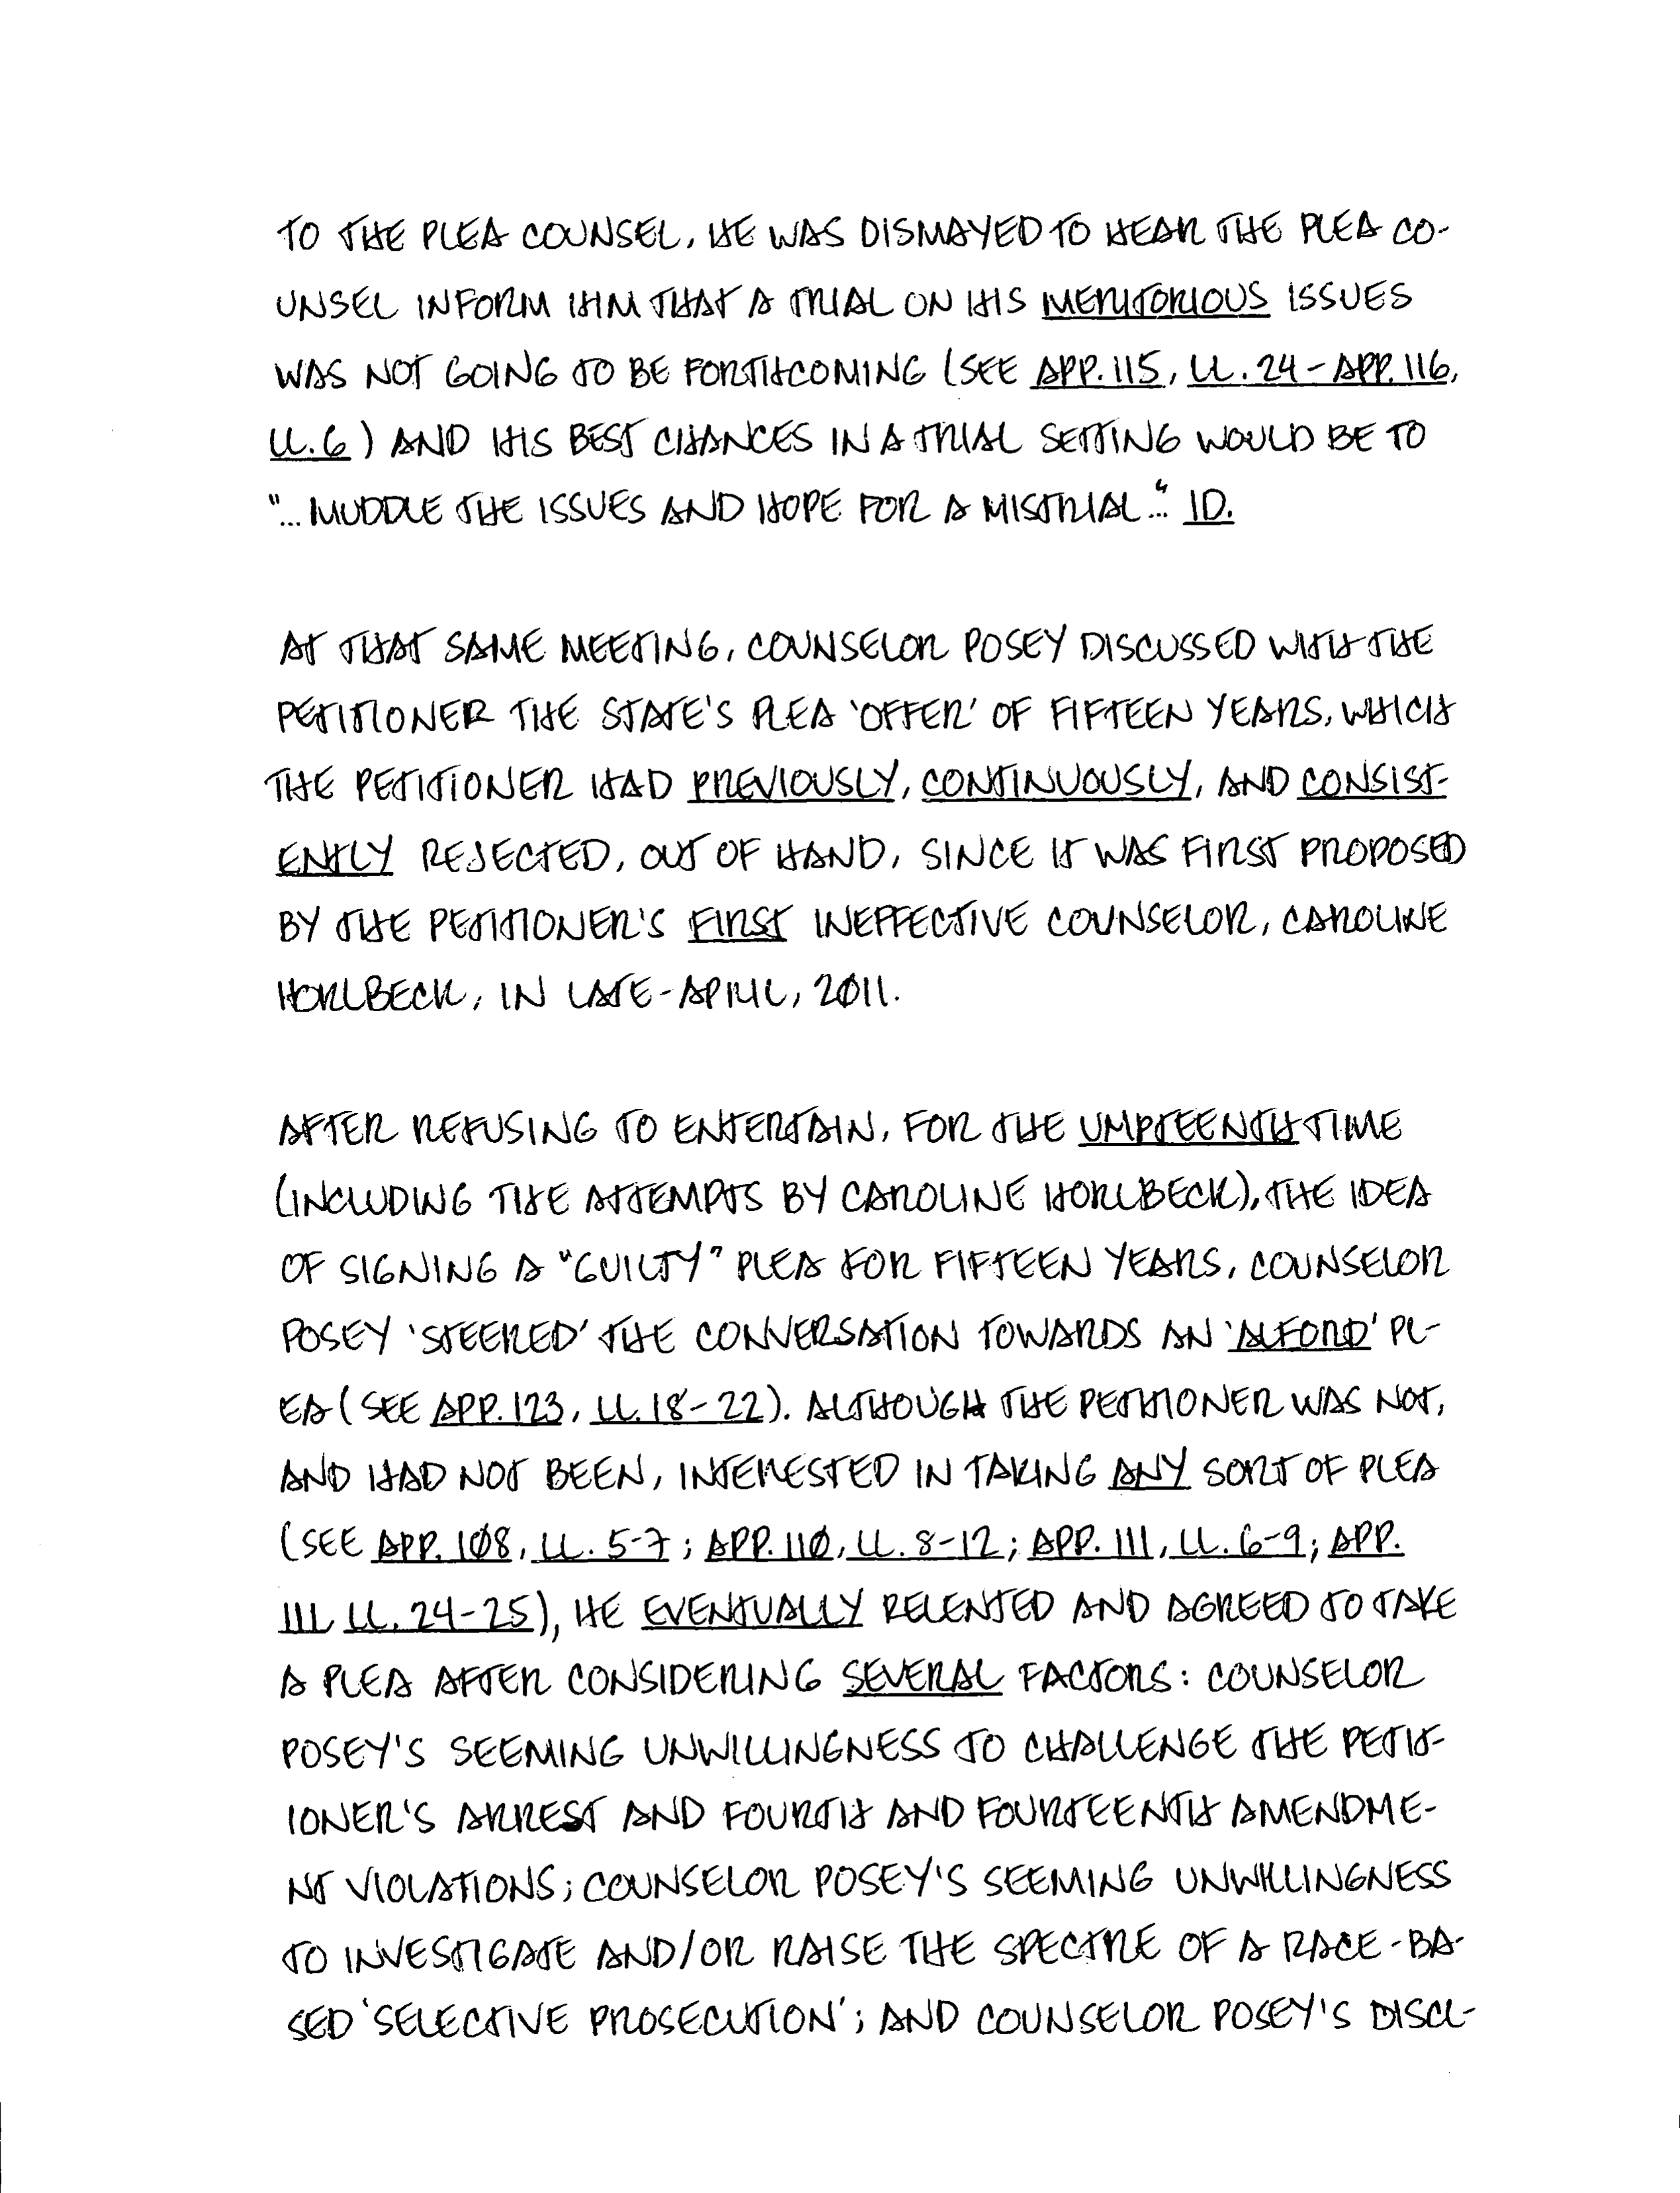 TO THE PLEA COUNSEL, HE WAS DISMAYED TO HEAR THE PLEA CO-
UNSEL INFORM HIM THAT A TRIAL ON HIS MERITORIOUS ISSUES
WAS NOT GOING TO BE FORTHCOMING (SEE APP. 115, LL. 24 - APP. 116,
LL. 6) AND HIS BEST CHANCES IN A TRIAL SETTING WOULD BE TO
"... MUDDLE THE ISSUES AND HOPE FOR A MISTRIAL..." ID.
AT THAT SAME MEETING, COUNSELOR POSEY DISCUSSED WITH THE
PETITIONER THE STATE'S PLEA 'OFFER' OF FIFTEEN YEARS, WHICH
THE PETITIONER HAD PREVIOUSLY, CONTINUOUSLY, AND CONSIST-
ENTLY REJECTED, OUT OF HAND, SINCE IT WAS FIRST PROPOSED
BY THE PETITIONER'S FIRST INEFFECTIVE COUNSELOR, CAROLINE
HORLBECK, IN LATE-APRIL, 2011.
AFTER REFUSING TO ENTERTAIN, FOR THE UMPTEENTH TIME
(INCLUDING THE ATTEMPTS BY CAROLINE HORLBECK), THE IDEA
OF SIGNING A "GUILTY" PLEA FOR FIFTEEN YEARS, COUNSELOR
POSEY 'STEERED' THE CONVERSATION TOWARDS AN 'ALFORD' PL-
EA (SEE APP. 123, LL. 18-22). ALTHOUGH THE PETITIONER WAS NOT,
AND HAD NOT BEEN, INTERESTED IN TAKING ANY SORT OF PLEA
(SEE APP. 108, LL. 5-7; APP. 110, LL. 8-12; APP. 111, LL. 6-9; APP.
111, LL. 24-25), HE EVENTUALLY RELENTED AND AGREED TO TAKE
A PLEA AFTER CONSIDERING SEVERAL FACTORS: COUNSELOR
POSEY'S SEEMING UNWILLINGNESS TO CHALLENGE THE PETIT-
IONER'S ARREST AND FOURTH AND FOURTEENTH AMENDME-
NT VIOLATIONS; COUNSELOR POSEY'S SEEMING UNWILLINGNESS
TO INVESTIGATE AND/OR RAISE THE SPECTRE OF A RACE-BA-
SED 'SELECTIVE PROSECUTION'; AND COUNSELOR POSEY'S DISCL-